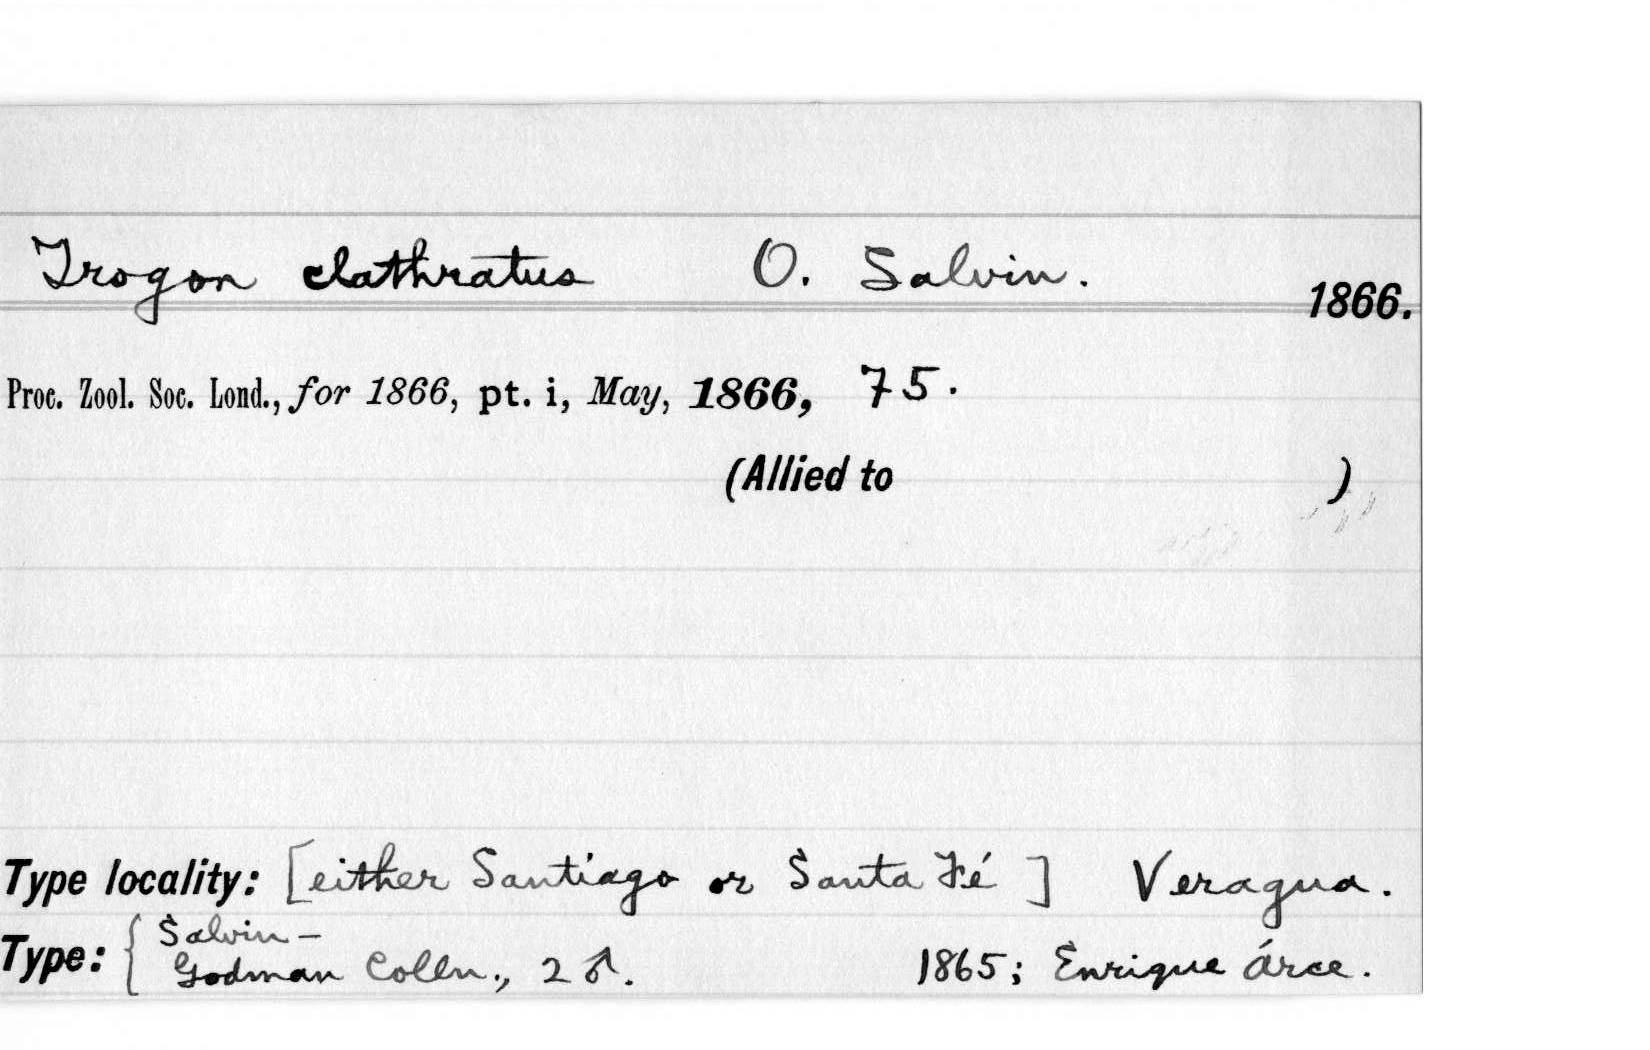 Trogon clathratus O. Salvin. 1866.
Proc. Zool. Soc. Lond., for 1866, pt. i, May, 1866, 75.
(Allied to )
Type locality: [either Santiago or Santa Fé] Veragua.
Type: { Salvin-
Godman Colln., 2 ♂. 1865; Enrique Árce.